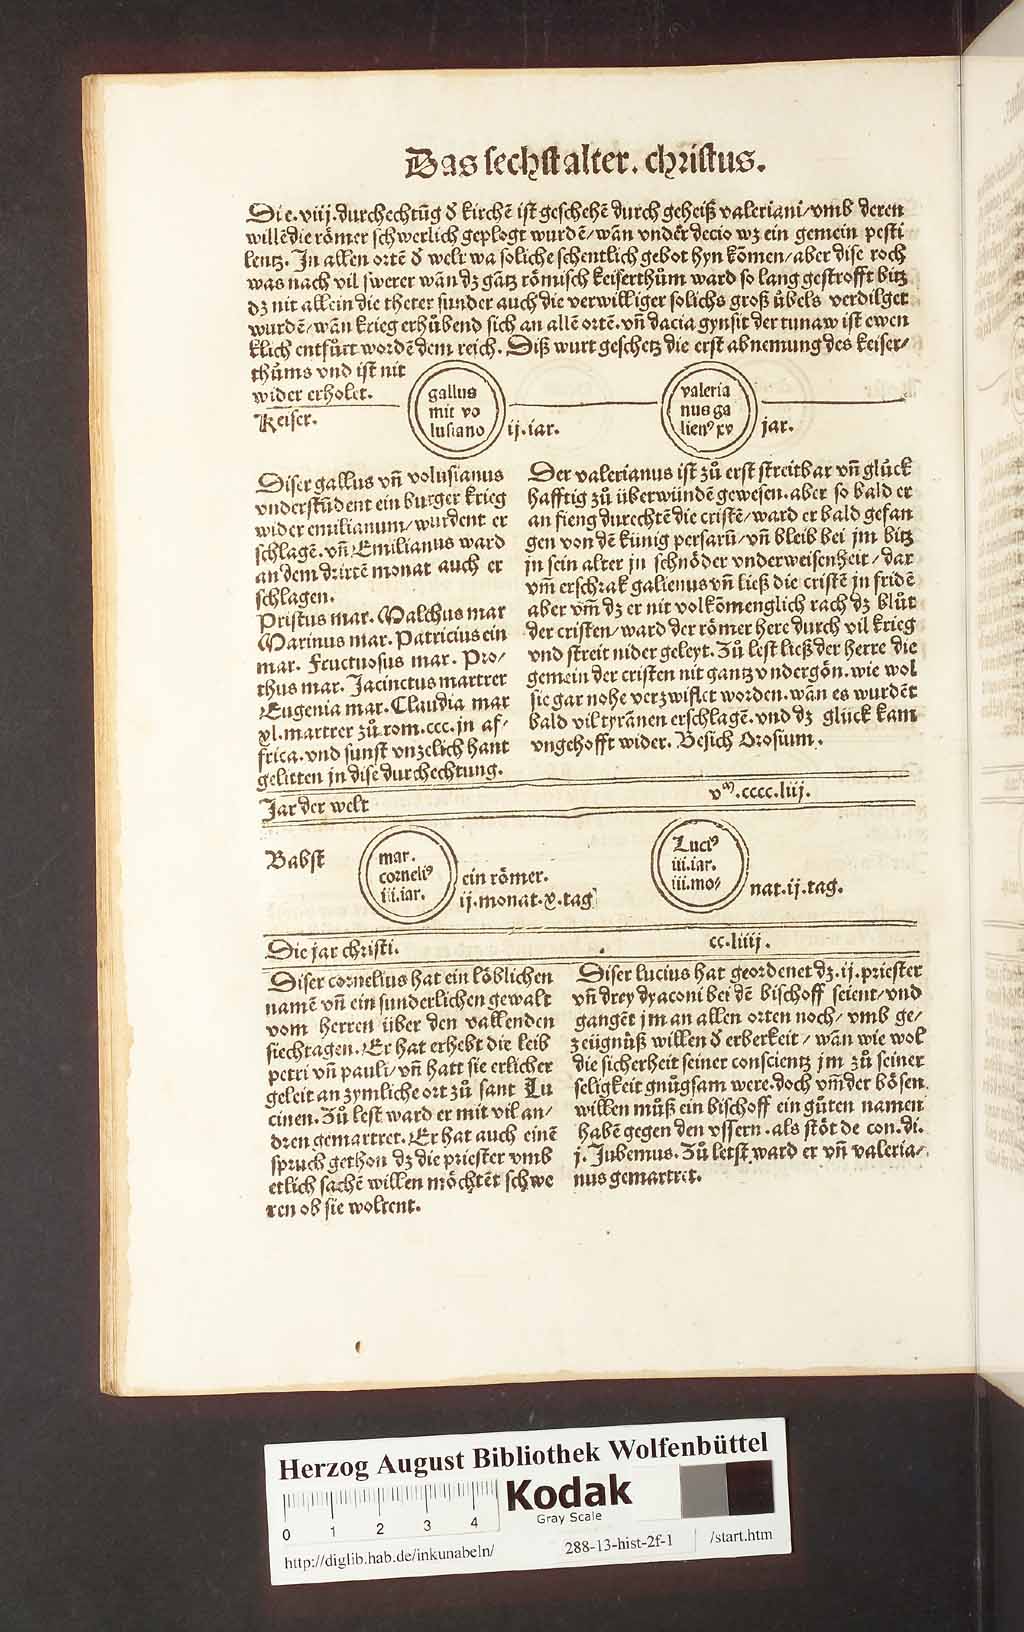 Das sechst alter. christus.
Die. viij. durchechtūg d̕ kirchē ist geschehē durch geheiß valeriani/ vmb deren
willē die rŏmer schwerlich geplogt wurdē/ wān vnder decio wz ein gemein pesti
lentz. Jn allen ortē d̕ welt wa soliche schentlich gebot hyn kōmen/ aber dise roch
was nach vil swerer wān dz gātz rŏmisch keiserthům ward so lang gestrofft bitz
dz nit allein die theter sunder auch die verwilliger solichs groß ůbels verdilget
wurdē/ wān krieg erhůbend sich an allē ortē. vn̄ dacia gynsit der tunaw ist ewen
klich entfůrt wordē dem reich. Diß wurt geschetz die erst abnemung des keiser/
thůms vnd ist nit
wider erholet.
Keiser.
gallus
mit vo
lusiano
ij. iar.
valeria
nus ga
lienꝰ xv
jar.
Diser gallus vn̄ volusianus
vnderstūdent ein burger krieg
wider emilianum/ wurdent er
schlagē. vn̄ Emilianus ward
an dem drittē monat auch er
schlagen.
Pristus mar. Malchus mar
Marinus mar. Patricius ein
mar. Fructuosus mar. Pro/
thus mar. Jacinctus martrer
Eugenia mar. Claudia mar
xl. martrer zů rom. ccc. jn af/
frica. vnd sunst vnzelich hant
gelitten jn dise durchechtung.
Der valerianus ist zů erst streitbar vn̄ glůck
hafftig zů überwündē gewesen. aber so bald er
an fieng durechtē die cristē/ ward er bald gefan
gen von dē künig persarū/ vn̄ bleib bei jm bitz
jn sein alter jn schnŏder vnderweisenheit/ dar
vm̄ erschrak galienus vn̄ ließ die cristē jn fridē
aber vm̄ dz er nit volkōmenglich rach dz blůt
der cristen/ ward der rŏmer here durch vil krieg
vnd streit nider geleyt. Zů lest ließ der herre die
gemein der cristen nit gantz vndergŏn. wie wol
sie gar nohe verzwiflet worden. wān es wurdēt
bald vil tyrānen erschlagē. vnd dz glück kam
vngehofft wider. Besich Orosium.
Jar der welt
vᵐ. cccc. liij.
Babst
mar.
corneliꝰ
iij. iar.
ein rŏmer.
ij. monat. x. tag
Luciꝰ
iii. iar.
iii. mo/
nat. ij. tag.
Die jar christi.
cc. liiij.
Diser cornelius hat ein lŏblichen
namē vn̄ ein sunderlichen gewalt
vom herren über den vallenden
siechtagen. Er hat erhebt die leib
petri vn̄ pauli/ vn̄ hatt sie erlicher
geleit an zymliche ort zů sant Lu
cinen. Zů lest ward er mit vil an/
dren gemartret. Er hat auch einē
spruch gethon dz die priester vmb
etlich sachē willen mŏchtēt schwe
ren ob sie woltent.
Diser lucius hat geordenet dz. ij. priester
vn̄ drey dyaconi bei dē bischoff seient/ vnd
gangēt jm an allen orten noch/ vmb ge/
zeügnůß willen d̕ erberkeit/ wān wie wol
die sicherheit seiner conscientz jm zů seiner
seligkeit gnůgsam were. doch vm̄ der bŏsen
willen můß ein bischoff ein gůten namen
habē gegen den vssern. als stŏt de con. di.
j. Jubemus. Zů letst ward er vn̄ valeria/
nus gemartret.
Herzog August Bibliothek Wolfenbüttel
Kodak
Gray Scale
0 1 2 3 4
http://diglib.hab.de/inkunabeln/
288-13-hist-2f-1
/start.htm